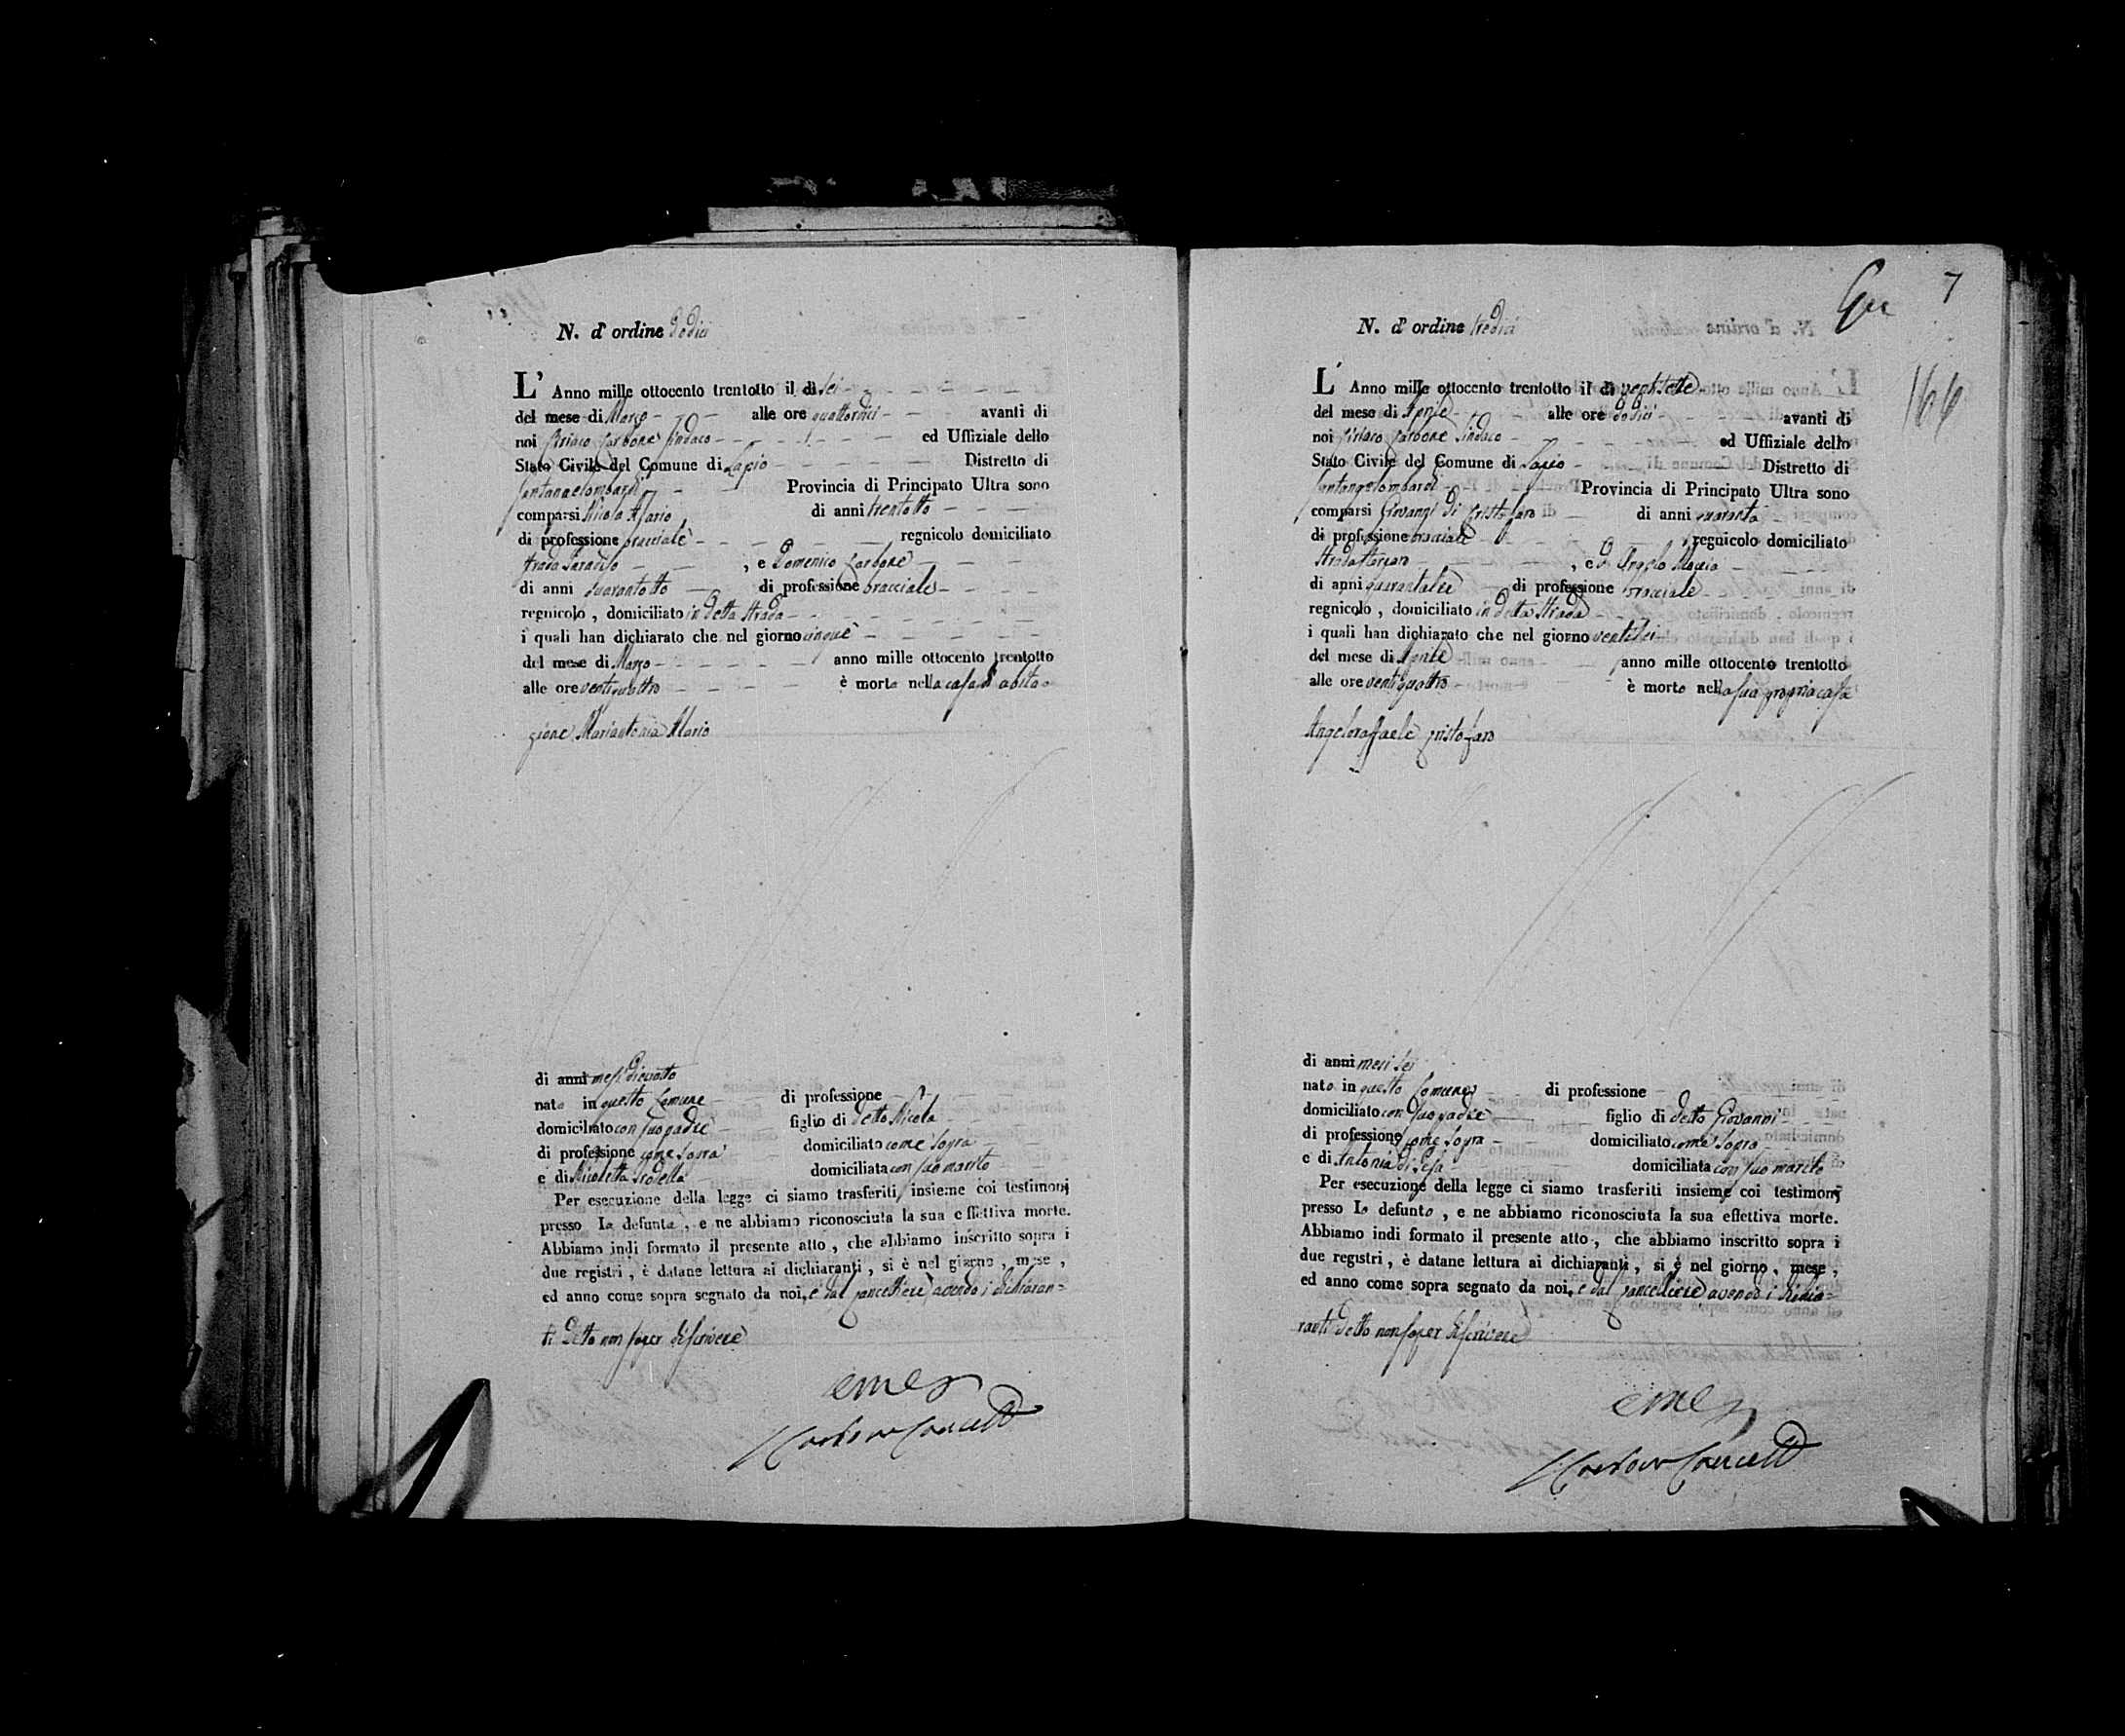 N. d' ordine dodici
L' Anno mille ottocento trentotto il dì sei
del mese di Marzo alle ore quattordici avanti di
noi Ciriaco Carbone Sindaco ed Uffiziale dello
Stato Civile del Comune di Lapio Distretto di
Santangelombardi Provincia di Principato Ultra sono
comparsi Nicola Alario di anni trentotto
di professione bracciale regnicolo domiciliato
strada Paradiso , e Domenico Carbone
di anni quarantotto di professione bracciale
regnicolo , domiciliato in detta strada
i quali han dichiarato che nel giorno cinque
del mese di Marzo anno mille ottocento trentotto
alle ore ventiquattro è morta nella casa d' abita=
zione Mariantonia Alario
di anni mesi dieciotto
nata in questo Comune di professione
domiciliato con suo padre figlio di detto Nicola
di professione come sopra domiciliato come sopra
e di Nicoletta domiciliata con suo marito
Per esecuzione della legge ci siamo trasferiti insieme coi testimonj
presso la defunta , e ne abbiamo riconosciuta la sua effettiva morte.
Abbiamo indi formato il presente atto , che abbiamo inscritto sopra i
due registri , è datane lettura ai dichiaranti , si è nel giorno , mese ,
ed anno come sopra segnato da noi, e dal Cancelliere avendo i dichiaran=
ti detto non saper di scrivere
7
N. d' ordine tredici
166
L' Anno mille ottocento trentotto il dì ventisette
del mese di Aprile alle ore dodici avanti di
noi Ciriaco Carbone Sindaco ed Uffiziale dello
Stato Civile del Comune di Lapio Distretto di
Santangelombardi Provincia di Principato Ultra sono
comparsi Giovanni di Cristofaro di anni quaranta
di professione bracciale regnicolo domiciliato
strada , e D. Angelo
di anni quarantatre di professione bracciale
regnicolo , domiciliato in detta strada
i quali han dichiarato che nel giorno ventisei
del mese di Aprile anno mille ottocento trentotto
alle ore ventiquattro è morto nella sua propria casa
Angeloraffaele Cristofaro
di anni mesi sei
nato in questo Comune di professione
domiciliato con suo padre figlio di detto Giovanni
di professione come sopra domiciliato come sopra
e di Antonia di domiciliata con suo marito
Per esecuzione della legge ci siamo trasferiti insieme coi testimonj
presso lo defunto , e ne abbiamo riconosciuta la sua effettiva morte.
Abbiamo indi formato il presente atto , che abbiamo inscritto sopra i
due registri , è datane lettura ai dichiaranti , si è nel giorno , mese ,
ed anno come sopra segnato da noi, e dal Cancelliere avendo i dichia=
ranti detto non saper di scrivere